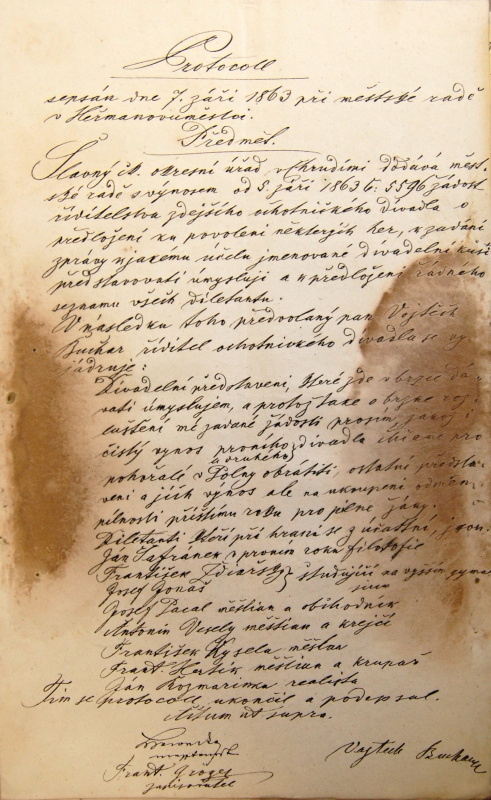 Protocoll
sepsán dne 7. září 1863 při městské radě
v Heřmanověměstci.
Předmět.
Slavný ck. okresní úřad v Chrudimi dodává měst-
ské radě s výnosem od 5. září 1863 č: 5596 žádost
řiditelstva zdejšího ochotnického divadla o
předložení ku povolení některých her, k zadání
zprávy k jakému účelu jmenované divadelní kusy
představovati úmyslují a k předložení řádného
seznamu všech diletantů.
V následku toho předvolaný pan Vojtěch
Buchar, řiditel ochotnického divadla se vy
jádruje:
Divadelní představení, které zde v brzce dá-
vati úmyslujem, a protož také o brzké vy
mé zadané žádosti prosím, jakož i
čistý výnos prvního divadla chceme pro
a druhého
pohořalé v Polný obrátiti, ostatní předsta-
vení a jich výnos ale na ukoupení odměn
pilnosti příštímu roku pro pilné žáky.
Diletanti kteří při hraní se z účastní, jsou:
Jan Šafránek v prvním roku filosofie
František Zdiarský
Josef Jonáš } študující na vyšším gymna
siu
Josef Pacal měštian a obchodník
Antonín Vesely měštian a krejčí
František Kysela měštan
Frant. Hertík měštian a krupař
Ján Rozmarinka realista
Tím se protocoll ukončil a podepsal.
Actum ut supra.
Vojtěch Buchar
Frant. Groger
zapisovatel